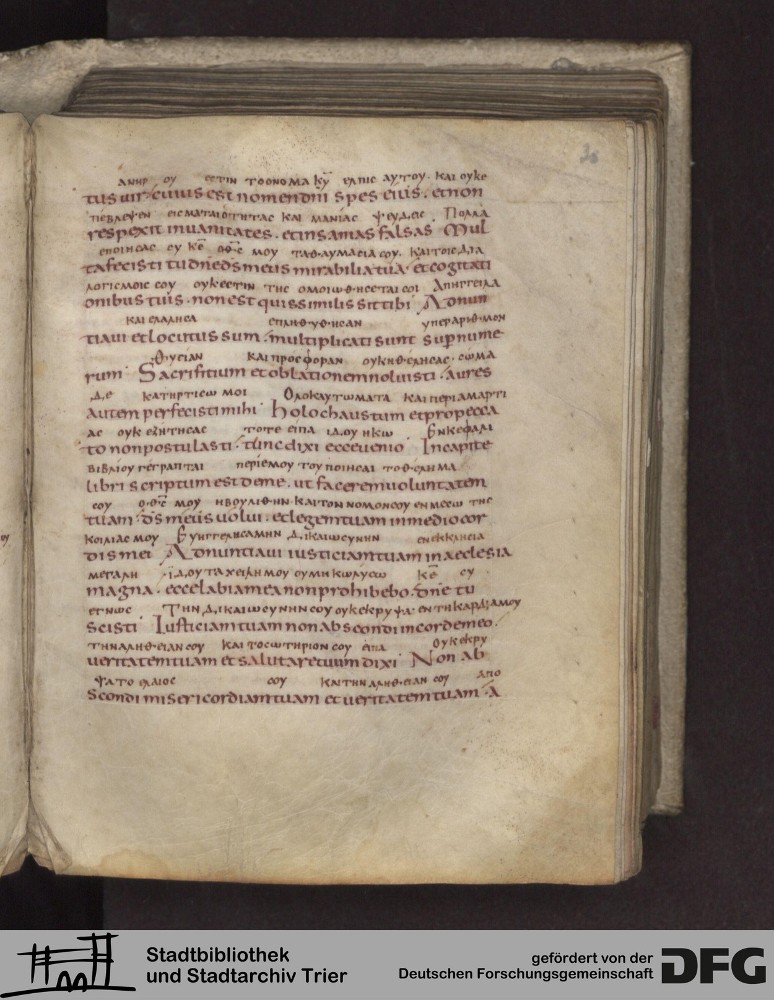 30
ΑΝΗΡ ΟΥ ΕCΤΙΝ ΤΟΟΝΟΜΑ Κ͞Υ ΕΛΠΙC ΑΥΤΟΥ· ΚΑΙ ΟΥΚΕ
tus uir cuius est nomen dni spes eius. et non
ΠΕΒΛΕΨΕΝ ΕΙC ΜΑΤΑΙΟΤΗΤΑC ΚΑΙ ΜΑΝΙΑC ΨΕΥΔΕΙC ΠΟΛΛΑ
respexit in uanitates. et insanias falsas Mul
ΕΠΟΙΗCΑC CΥ Κ͞Ε Ο Θ͞C ΜΟΥ ΤΑ ΘΑΥΜΑCΙΑ CΟΥ. ΚΑΙ ΤΟΙC ΔΙΑ
ta fecisti tu dne ds meus mirabilia tua· et cogitati
ΛΟΓΙCΜΟΙC CΟΥ ΟΥΚ ΕCΤΙΝ ΤΗC ΟΜΟΙΩΘΗCΕΤΑΙ CΟΙ ΑΠΗΓΓΕΙΛΑ
onibus tuis· non est quis similis sit tibi Adnun
ΚΑΙ ΕΛΑΛΗCΑ ΕΠΛΗΘΥΘΗCΑΝ ΥΠΕΡ ΑΡΙΘΜΟΝ
tiaui et locutus sum· multiplicati sunt sup nume
ΘΥCΙΑΝ ΚΑΙ ΠΡΟCΦΟΡΑΝ ΟΥΚ ΗΘΕΛΗCΑC· CΩΜΑ
rum· Sacrificium et oblationem noluisti. aures
ΔΕ ΚΑΤΗΡΤΙCΩ ΜΟΙ ΟΛΟΚΑΥΤΩΜΑΤΑ ΚΑΙ ΠΕΡΙ ΑΜΑΡΤΙ
autem perfecisti mihi holochaustum et pro pecca
ΑC ΟΥΚ ΕΖΗΤΗCΑC ΤΟΤΕ ΕΙΠΑ ΙΔΟΥ ΗΚΩ ΕΝ ΚΕΦΑΛΙ
to non postulasti· tunc dixi ecce uenio In capite
ΒΙΒΛΙΟΥ ΓΕΓΡΑΠΤΑΙ ΠΕΡΙ ΕΜΟΥ ΤΟΥ ΠΟΙΗCΑΙ ΤΟ ΘΕΛΗΜΑ
libri scriptum est de me. ut facerem uoluntatem
CΟΥ Ο Θ͞C ΜΟΥ ΗΒΟΥΛΙΘΗΝ· ΚΑΙ ΤΟΝ ΝΟΜΟΝ CΟΥ ΕΝ ΜΕCΩ ΤΗC
tuam· ds meus uolui· et legem tuam in medio cor
ΚΟΙΛΙΑC ΜΟΥ ΕΥΗΓΓΕΛΙCΑΜΗΝ ΔΙΚΑΙΩCΥΝΗΝ ΕΝ ΕΚΚΛΗCΙΑ
dis mei Adnuntiaui iusticiam tuam in aeclesia
ΜΕΓΑΛΗ ΙΔΟΥ ΤΑ ΧΕΙΛΗ ΜΟΥ ΟΥ ΜΗ ΚΩΛΥCΩ Κ͞Ε CΥ
magna· ecce labia mea non prohibebo· dne tu
ΕΓΝΩC ΤΗΝ ΔΙΚΑΙΩCΥΝΗΝ CΟΥ ΟΥΚ ΕΚΡΥΨΑ· ΕΝ ΤΗ ΚΑΡΔΙΑ ΜΟΥ
scisti Iusticiam tuam non abscondi in corde meo·
ΤΗΝ ΑΛΗΘΕΙΑΝ CΟΥ ΚΑΙ ΤΟ CΩΤΗΡΙΟΝ CΟΥ ΕΙΠΑ ΟΥΚ ΕΚΡΥ
ueritatem tuam et salutare tuum dixi Non ab
ΨΑ ΤΟ ΕΛΑΙΟC CΟΥ ΚΑΙ ΤΗΝ ΑΛΗΘΕΙΑΝ CΟΥ ΑΠΟ
scondi misericordiam tuam et ueritatem tuam· a
Stadtbibliothek
und Stadtarchiv Trier
gefördert von der
Deutschen Forschungsgemeinschaft
DFG